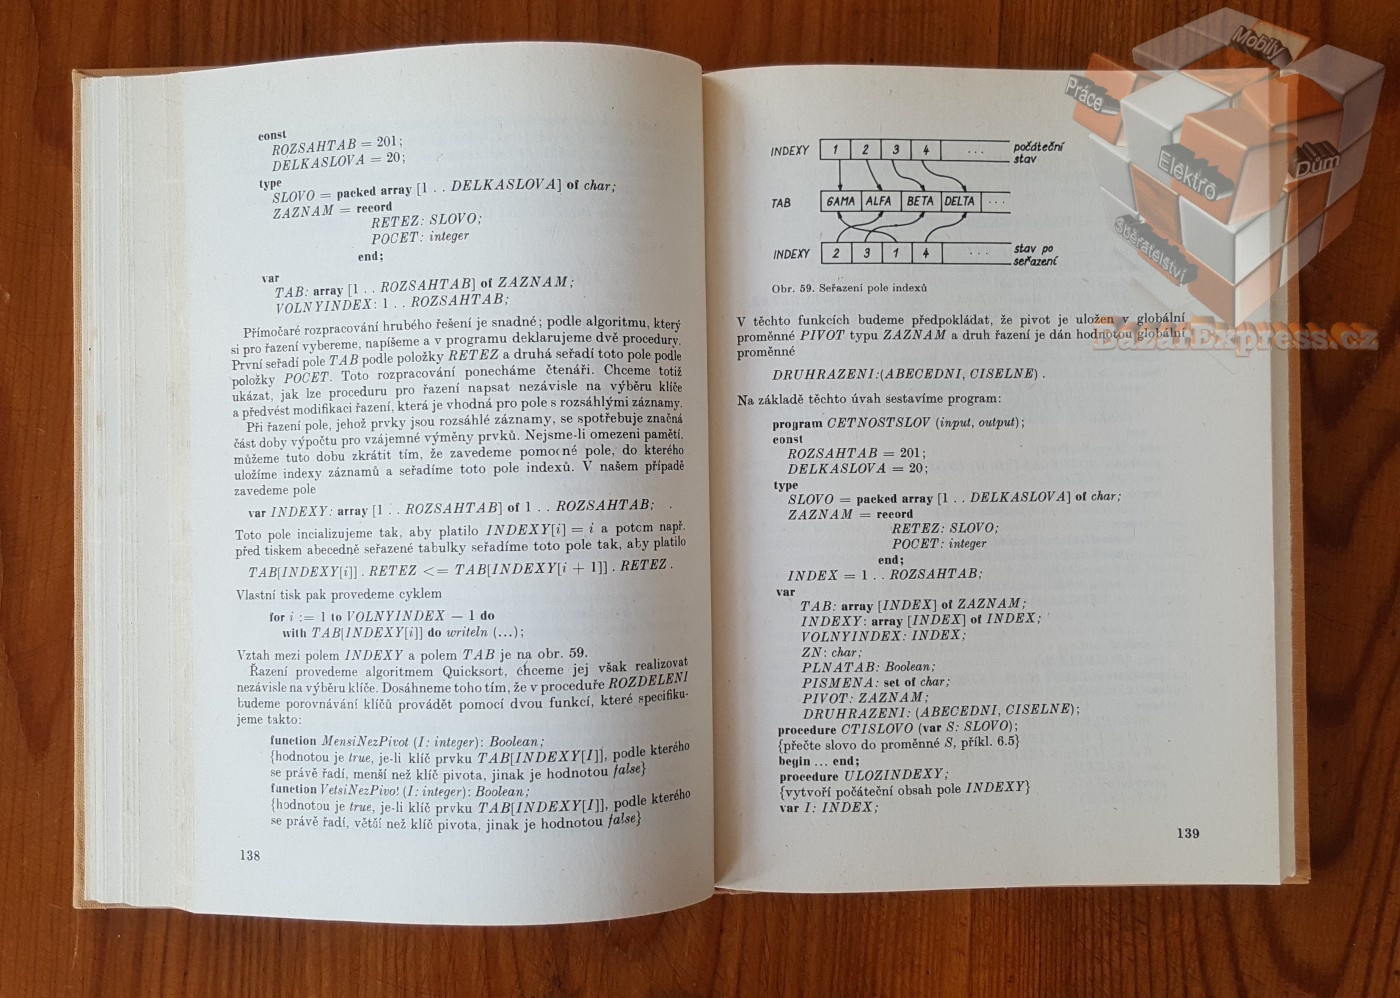 const
ROZSAHTAB = 201;
DELKASLOVA = 20;
type
SLOVO = packed array [1 . . DELKASLOVA] of char;
ZAZNAM = record
RETEZ: SLOVO;
POCET: integer
end;
var
TAB: array [1 . . ROZSAHTAB] of ZAZNAM;
VOLNYINDEX: 1 . . ROZSAHTAB;
Přímočaré rozpracování hrubého řešení je snadné; podle algoritmu, který
si pro řazení vybereme, napíšeme a v programu deklarujeme dvě procedury.
První seřadí pole TAB podle položky RETEZ a druhá seřadí toto pole podle
položky POCET. Toto rozpracování ponecháme čtenáři. Chceme totiž
ukázat, jak lze proceduru pro řazení napsat nezávisle na výběru klíče
a předvést modifikaci řazení, která je vhodná pro pole s rozsáhlými záznamy.
Při řazení pole, jehož prvky jsou rozsáhlé záznamy, se spotřebuje značná
část doby výpočtu pro vzájemné výměny prvků. Nejsme-li omezeni pamětí,
můžeme tuto dobu zkrátit tím, že zavedeme pomocné pole, do kterého
uložíme indexy záznamů a seřadíme toto pole indexů. V našem případě
zavedeme pole
var INDEXY: array [1 . . ROZSAHTAB] of 1 . . ROZSAHTAB;
Toto pole incializujeme tak, aby platilo INDEXY[i] = i a potom např.
před tiskem abecedně seřazené tabulky seřadíme toto pole tak, aby platilo
TAB[INDEXY[i]] . RETEZ <= TAB[INDEXY[i + 1]] . RETEZ .
Vlastní tisk pak provedeme cyklem
for i := 1 to VOLNYINDEX − 1 do
with TAB[INDEXY[i]] do writeln (...);
Vztah mezi polem INDEXY a polem TAB je na obr. 59.
Řazení provedeme algoritmem Quicksort, chceme jej však realizovat
nezávisle na výběru klíče. Dosáhneme toho tím, že v proceduře ROZDELENI
budeme porovnávání klíčů provádět pomocí dvou funkcí, které specifiku-
jeme takto:
function MensiNezPivot (I: integer): Boolean;
{hodnotou je true, je-li klíč prvku TAB[INDEXY[I]], podle kterého
se právě řadí, menší než klíč pivota, jinak je hodnotou false}
function VetsiNezPivo! (I: integer): Boolean;
{hodnotou je true, je-li klíč prvku TAB[INDEXY[I]], podle kterého
se právě řadí, větší než klíč pivota, jinak je hodnotou false}
138
INDEXY 1 2 3 4 . . . počáteční
stav
TAB GAMA ALFA BETA DELTA . . .
INDEXY 2 3 1 4 . . . stav po
seřazení
Obr. 59. Seřazení pole indexů
V těchto funkcích budeme předpokládat, že pivot je uložen v globální
proměnné PIVOT typu ZAZNAM a druh řazení je dán hodnotou globální
proměnné
DRUHRAZENI:(ABECEDNI, CISELNE) .
Na základě těchto úvah sestavíme program:
program CETNOSTSLOV (input, output);
const
ROZSAHTAB = 201;
DELKASLOVA = 20;
type
SLOVO = packed array [1 . . DELKASLOVA] of char;
ZAZNAM = record
RETEZ: SLOVO;
POCET: integer
end;
INDEX = 1 . . ROZSAHTAB;
var
TAB: array [INDEX] of ZAZNAM;
INDEXY: array [INDEX] of INDEX;
VOLNYINDEX: INDEX;
ZN: char;
PLNATAB: Boolean;
PISMENA: set of char;
PIVOT: ZAZNAM;
DRUHRAZENI: (ABECEDNI, CISELNE);
procedure CTISLOVO (var S: SLOVO);
{přečte slovo do proměnné S, příkl. 6.5}
begin ... end;
procedure ULOZINDEXY;
{vytvoří počáteční obsah pole INDEXY}
var I: INDEX;
139
Mobily
Práce
Elektro
Dům
Sběratelství
BazarExpress.cz